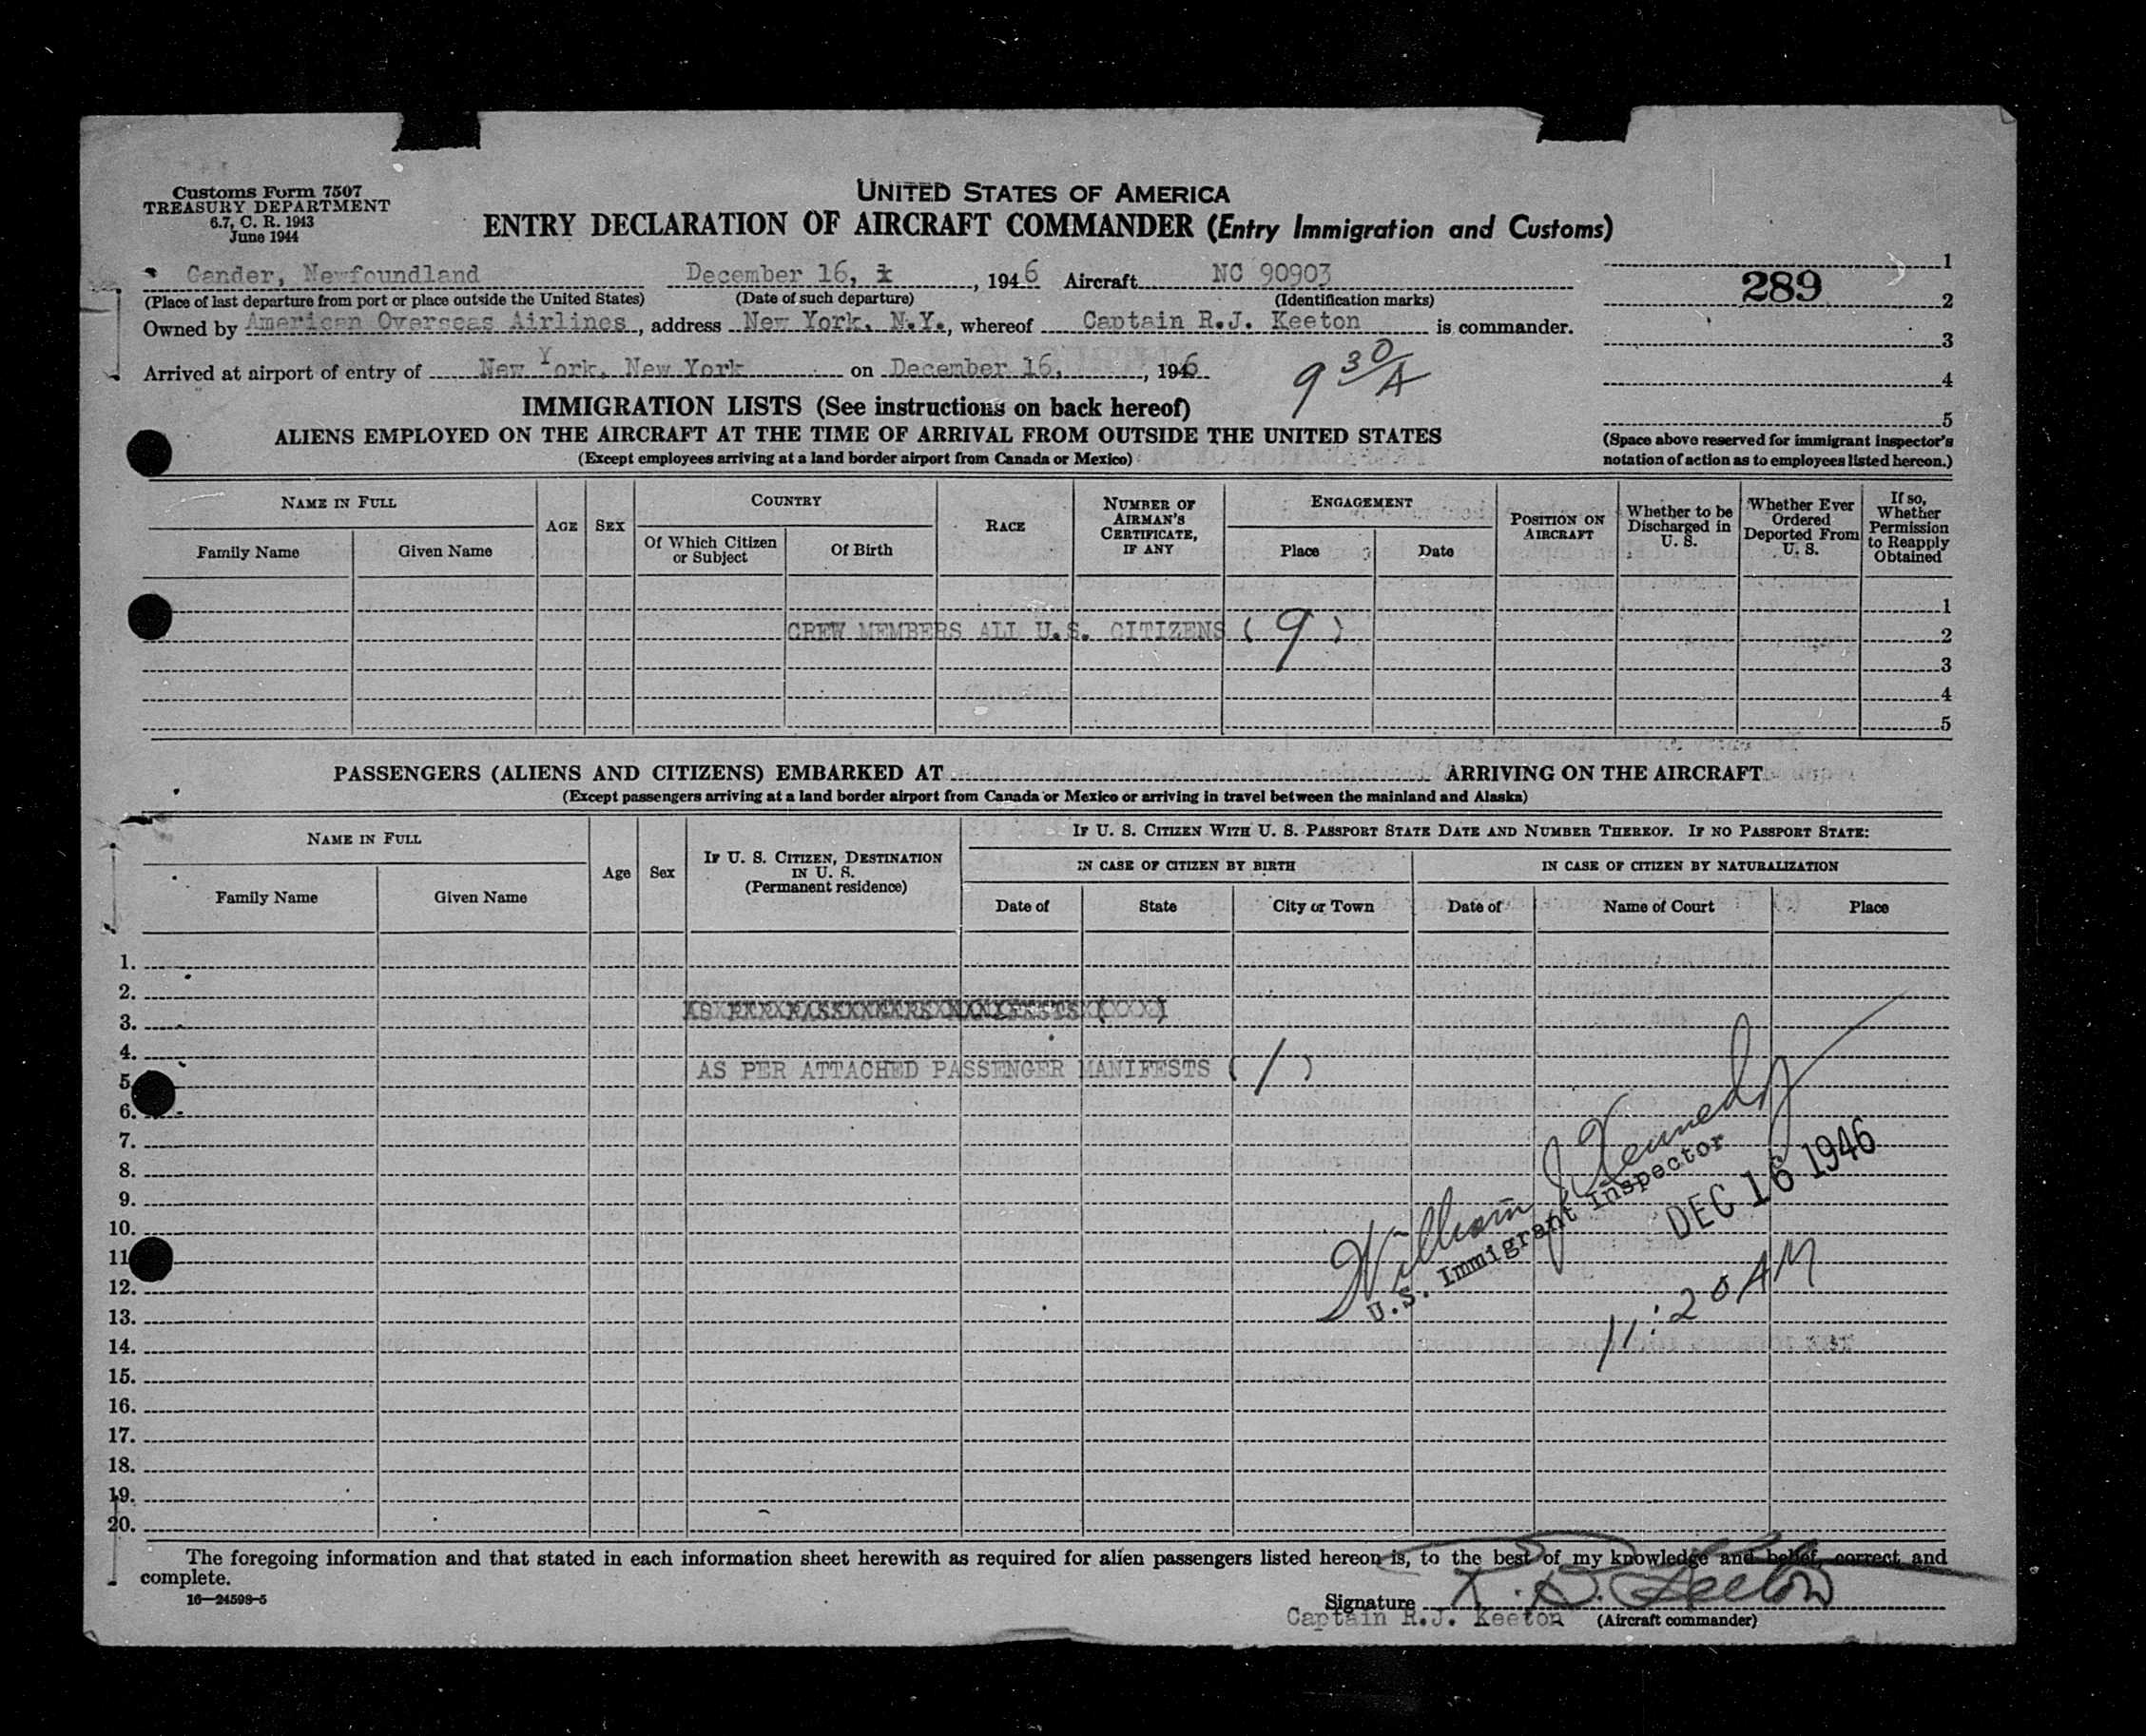 Customs Form 7507
TREASURY DEPARTMENT
6.7, C. R. 1943
June 1944
UNITED STATES OF AMERICA
ENTRY DECLARATION OF AIRCRAFT COMMANDER (Entry Immigration and Customs)
Gander, Newfoundland December 16, , 1946 Aircraft NC 90903
(Place of last departure from port or place outside the United States) (Date of such departure) (Identification marks)
Owned by American Overseas Airlines, address New York, N.Y., whereof Captain R.J. Keeton is commander.
Arrived at airport of entry of New York, New York on December 16, , 1946
9 30/A
1
289
2
3
4
5
(Space above reserved for immigrant inspector's
notation of action as to employees listed hereon.)
IMMIGRATION LISTS (See instructions on back hereof)
ALIENS EMPLOYED ON THE AIRCRAFT AT THE TIME OF ARRIVAL FROM OUTSIDE THE UNITED STATES
(Except employees arriving at a land border airport from Canada or Mexico)
NAME IN FULL
Family Name
Given Name
AGE
SEX
COUNTRY
Of Which Citizen
or Subject
Of Birth
RACE
NUMBER OF
AIRMAN'S
CERTIFICATE,
IF ANY
ENGAGEMENT
Place
Date
POSITION ON
AIRCRAFT
Whether to be
Discharged in
U. S.
Whether Ever
Ordered
Deported From
U. S.
If so,
Whether
Permission
to Reapply
Obtained
1
CREW MEMBERS ALL U.S. CITIZENS ( 9 )
2
3
4
5
PASSENGERS (ALIENS AND CITIZENS) EMBARKED AT ARRIVING ON THE AIRCRAFT
(Except passengers arriving at a land border airport from Canada or Mexico or arriving in travel between the mainland and Alaska)
NAME IN FULL
Family Name
Given Name
Age
Sex
IF U. S. CITIZEN, DESTINATION
IN U. S.
(Permanent residence)
IF U. S. CITIZEN WITH U. S. PASSPORT STATE DATE AND NUMBER THEREOF. IF NO PASSPORT STATE:
IN CASE OF CITIZEN BY BIRTH
IN CASE OF CITIZEN BY NATURALIZATION
Date of
State
City or Town
Date of
Name of Court
Place
1.
2.
3.
4.
AS PER ATTACHED PASSENGER MANIFESTS ( / )
5.
6.
7.
8.
9.
10.
11
12.
13.
14.
15.
16.
17.
18.
19.
20.
William J Kennedy
U.S. Immigrant Inspector
DEC 16 1946
11:20 AM
The foregoing information and that stated in each information sheet herewith as required for alien passengers listed hereon is, to the best of my knowledge and belief, correct and
complete.
16—24598-5
Signature R. J. Keeton
Captain R.J. Keeton (Aircraft commander)